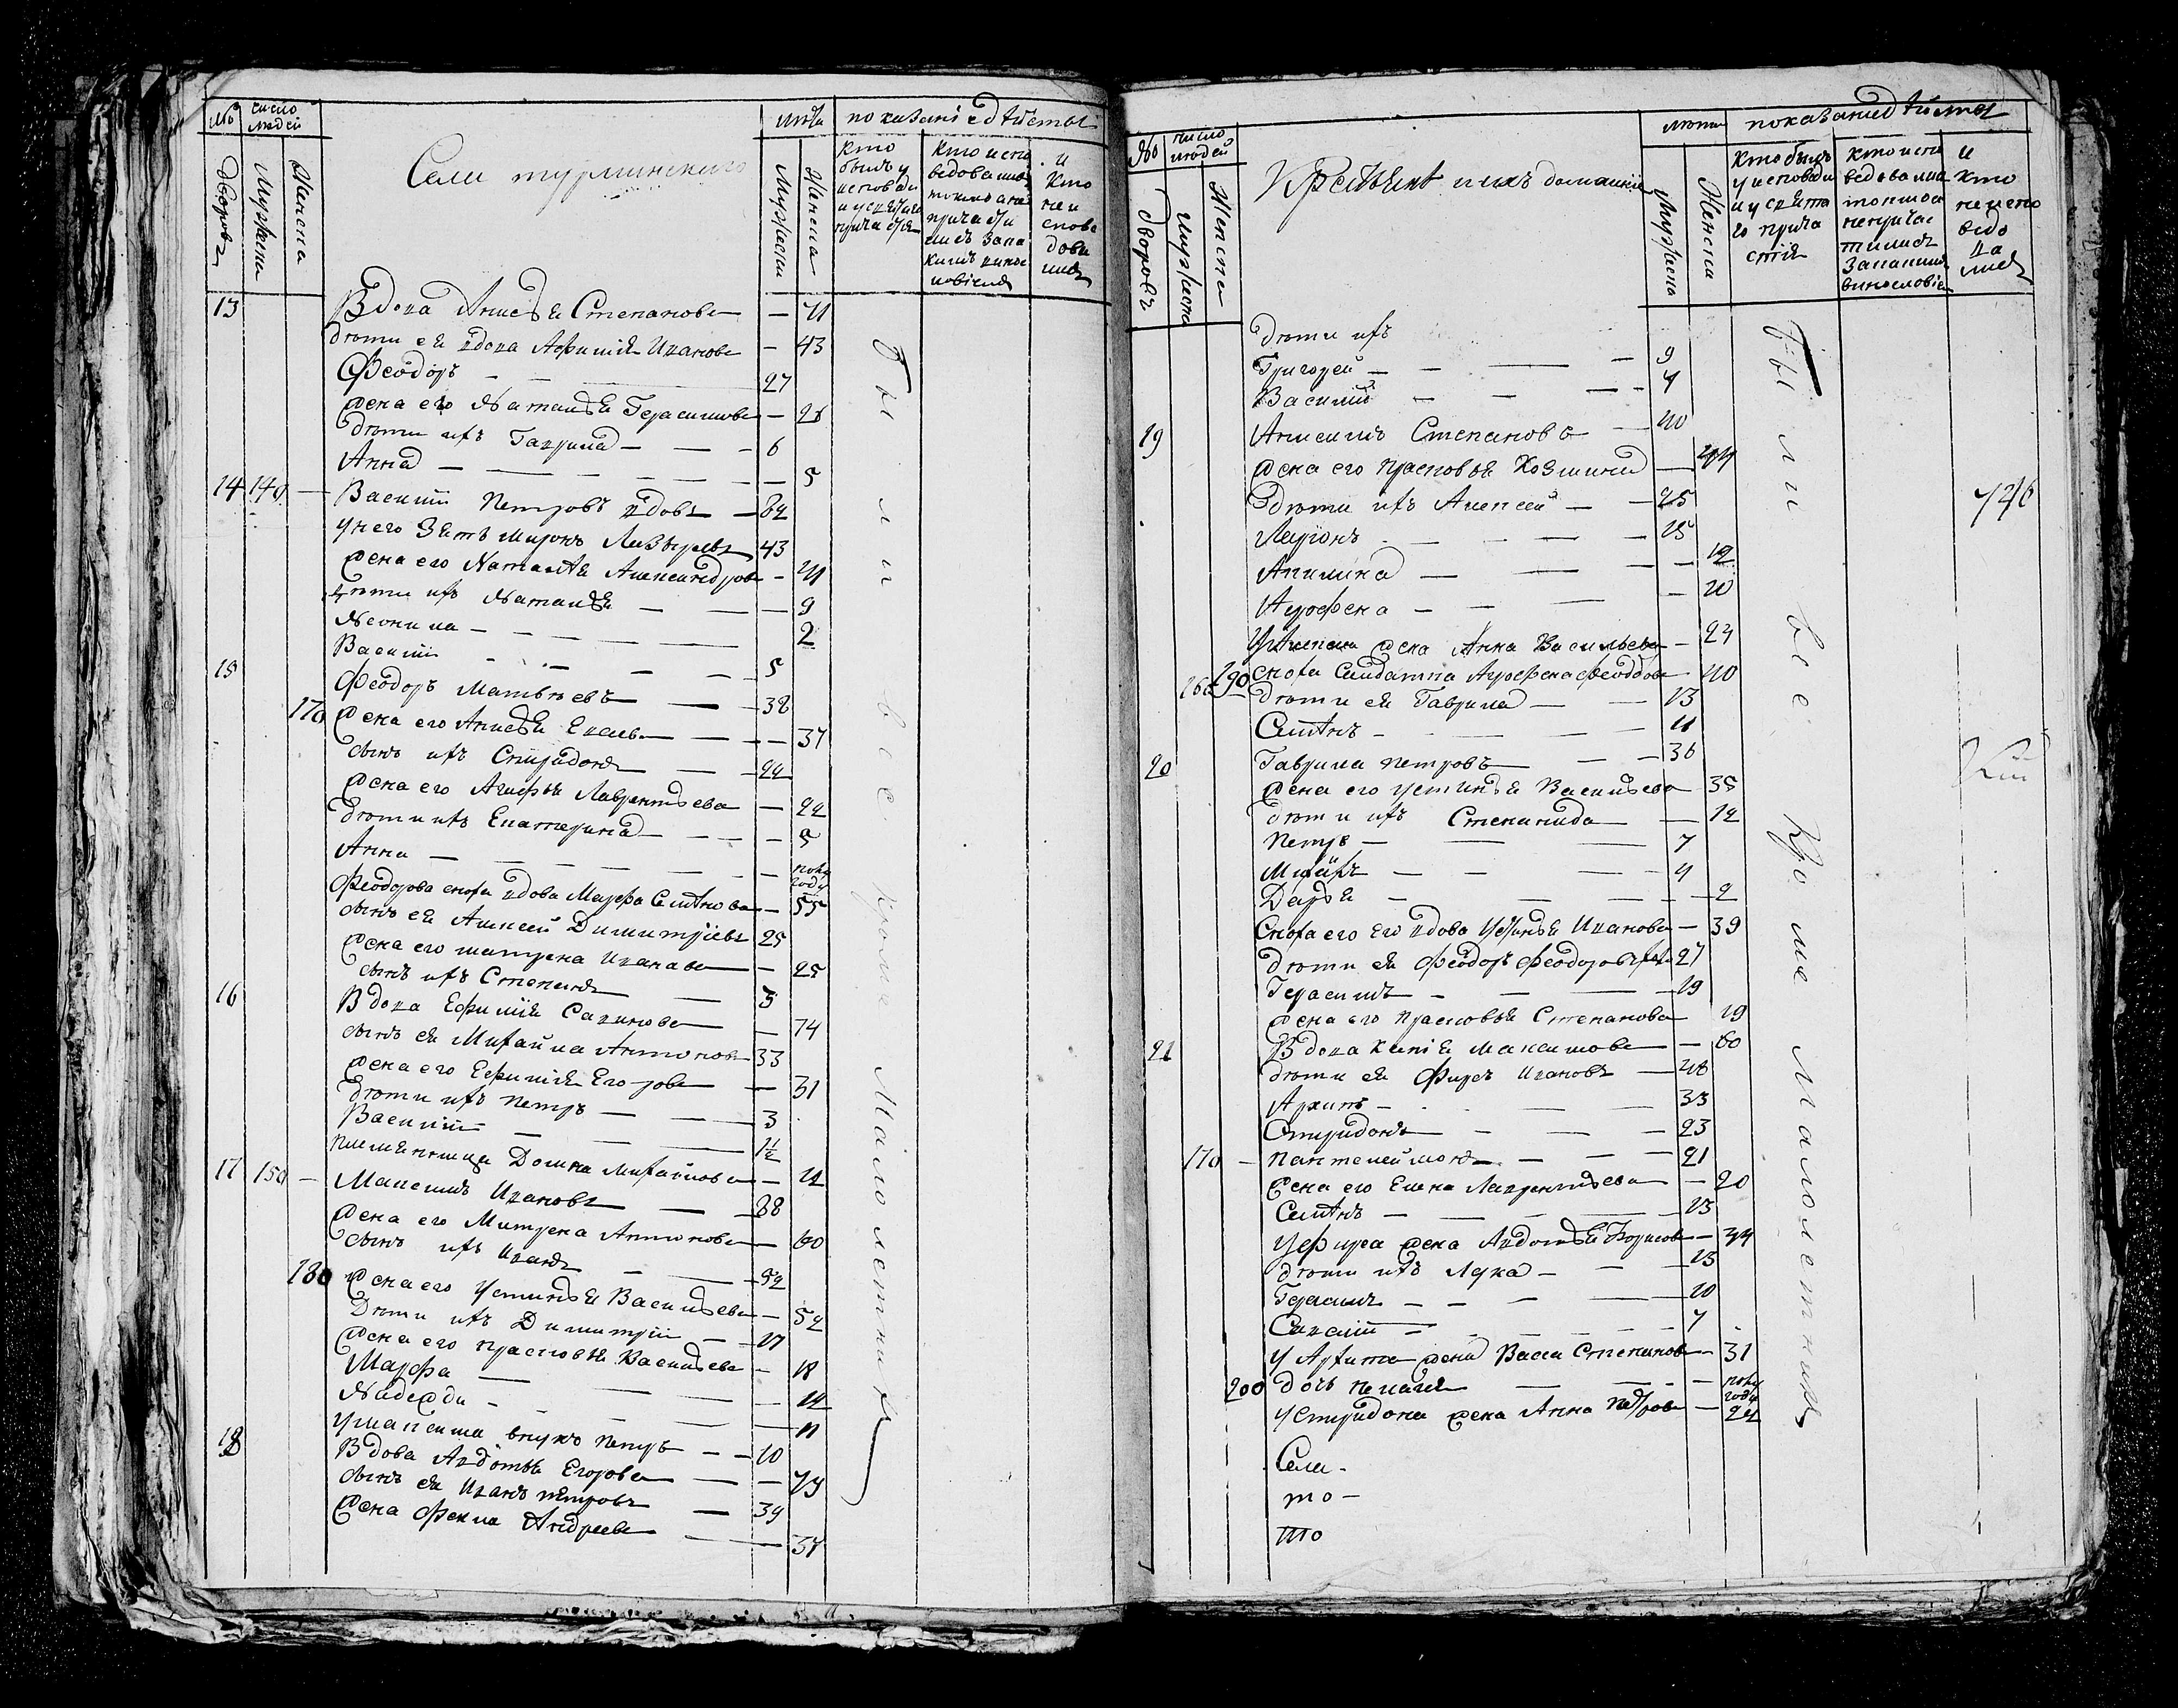 № дворовъ
число людей
Мужеска
Женска
Села турминского
лѣта
Мужеска
Женска
показаніе дѣйства
кто былъ у исповеди и у святаго причастія
кто испо
ведовались
токмо а не
прича
лись зака
кимъ винос
ловіемъ
и
кто
не и
спове
дова
лись
13 Вдова Анисья Степанова — 71
дѣти ея вдова Афимія Иванова — 43
Феодоръ — 27
жена его Наталья Герасимова — 26
дѣти ихъ Гаврила — 6
Анна — 5
14 149 — Василій Петровъ вдовъ — 62
у него Зять Миронъ Лазыревъ 43
жена его Наталья Александрова — 41
дѣти ихъ Наталья — 9
Неонила — 2
Василій — 5
15 Феодоръ Матвѣевъ — 38
170 жена его Анисья — 37
сынъ ихъ Спиридонъ — 22
жена его Агафья Лаврентьева — 22
дѣти ихъ Екатерина — 5
Анна — полу году
Феодорова сноха вдова Марфа Семенова — 55
сынъ ея Алексей Димитріевъ 25
жена его матрена Иванова — 25
сынъ ихъ Степанъ — 3
16 Вдова Ефимія Савинова — 74
сынъ ея Михайла Антоновъ 33
жена его Ефимія Егорова — 31
дѣти ихъ Петръ — 3
Василій — 1½
племянница Домна Михайлова — 11
17 150 — Максимъ Ивановъ — 88
жена его Матрена Антонова — 60
сынъ ихъ Иванъ — 52
180 жена его Устинья Васильева — 52
Дѣти ихъ Димитрій — 17
жена его прасковья Васильева — 18
Марфа — 14
Надежда — 11
У максима внукъ Петръ — 10
18 Вдова Авдотья Егорова — 73
сынъ ея Иванъ петровъ — 39
жена Фекла Андреева — 37
были
все
кроме
Малолетнихъ
№ дворовъ
число людей
Мужеска
Женска
Крестьяне и ихъ домашніе
лѣта
Мужеска
Женска
показаніе дѣйства
кто былъ
у исповеди
и у свята
го прича
стія
кто испо
ведовались
токмо а
не причас
тились
За какимъ
винословіемъ
и
кто
не испо
ведо
ва
лись
дѣти ихъ
Григорей — 9
Василій — 7
19 Анисимъ Степановъ — 40
жена его прасковья Козмина — 44
дѣти ихъ Алексей — 25
Ларіонъ — 15
Акилина — 12
Агрофена — 10
У Алексея жена Анна Васильева — 23
160 190 сноха Салдатка Агрофена Феодорова — 40
дѣти ея Гаврила — 13
Семенъ — 11
20 Гаврила петровъ — 36
жена его устинья Васильева 35
дѣти ихъ Степанида — 12
Петръ — 7
— 4
Дарья — 2
Сноха его вдова Устинья Иванова — 39
дѣти ея Феодоръ Феодоровъ 21
Герасимъ — 19
жена его прасковья Степанова 19
21 Вдова максимова — 60
дѣти ея Фирсъ Ивановъ — 48
Архипъ — 33
Спиридонъ — 23
170 — пантелеймонъ — 21
жена его Елена Лаврентьева — 20
Семенъ — 15
У фирса жена Авдотья Борисова — 44
дѣти ихъ Лука — 15
Герасимъ — 10
Савелій — 7
У Архипа жена Васса Степанова — 31
200 дочь пелагія — полу году
У Спиридона жена Анна петрова — 24
Села —
то —
то
были все Кроме малолетнихъ
726